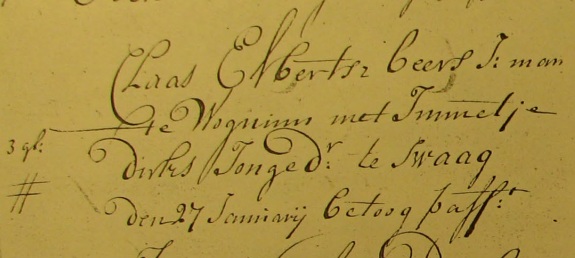 Claas Elbertsz beers J: man
te Wognum met Immetje
3 gl: dirks Jonge Dr. te Swaag
#
den 27 Januarij betoog pass:t